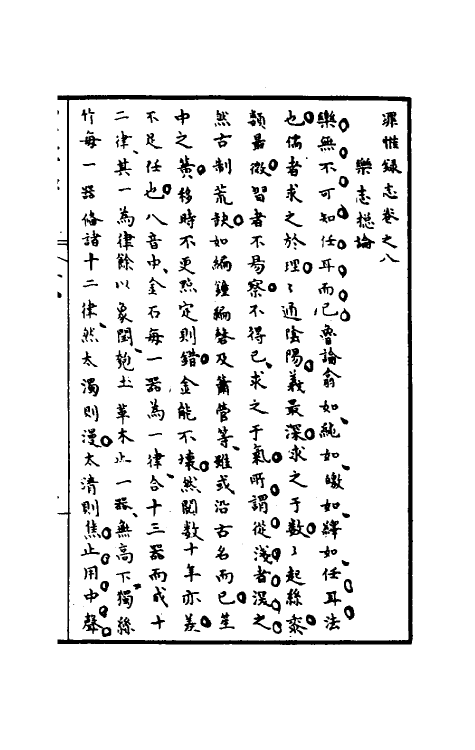 罪惟錄志卷之八
樂志總論
樂無不可知任耳而已魯論翕如純如皦如繹如任耳法
也儒者求之於理理通陰陽義最深求之于數數起絲黍
類最微習者不易察不得已求之于氣所謂從淺者深之
然古制荒缺如編鐘編磬及簫管等雖或沿古名而已笙
中之簧移時不更點定則錯金能不壞然閱數十年亦差
不足任也八音中金石每一器為一律合十三器而成十
二律其一為律餘以象閏匏土革木止一器無高下獨絲
竹每一器俻諸十二律然太濁則漫太清則焦止用中聲